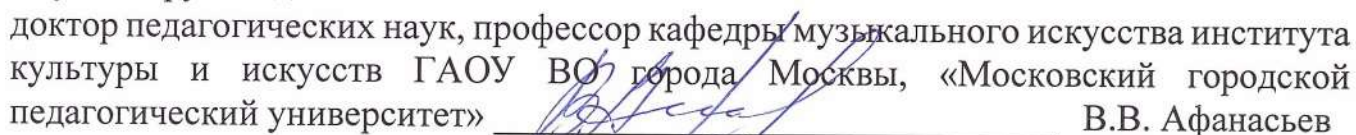 доктор педагогических наук, профессор кафедры музыкального искусства института
культуры и искусств ГАОУ ВО города Москвы, «Московский городской
педагогический университет» В.В. Афанасьев